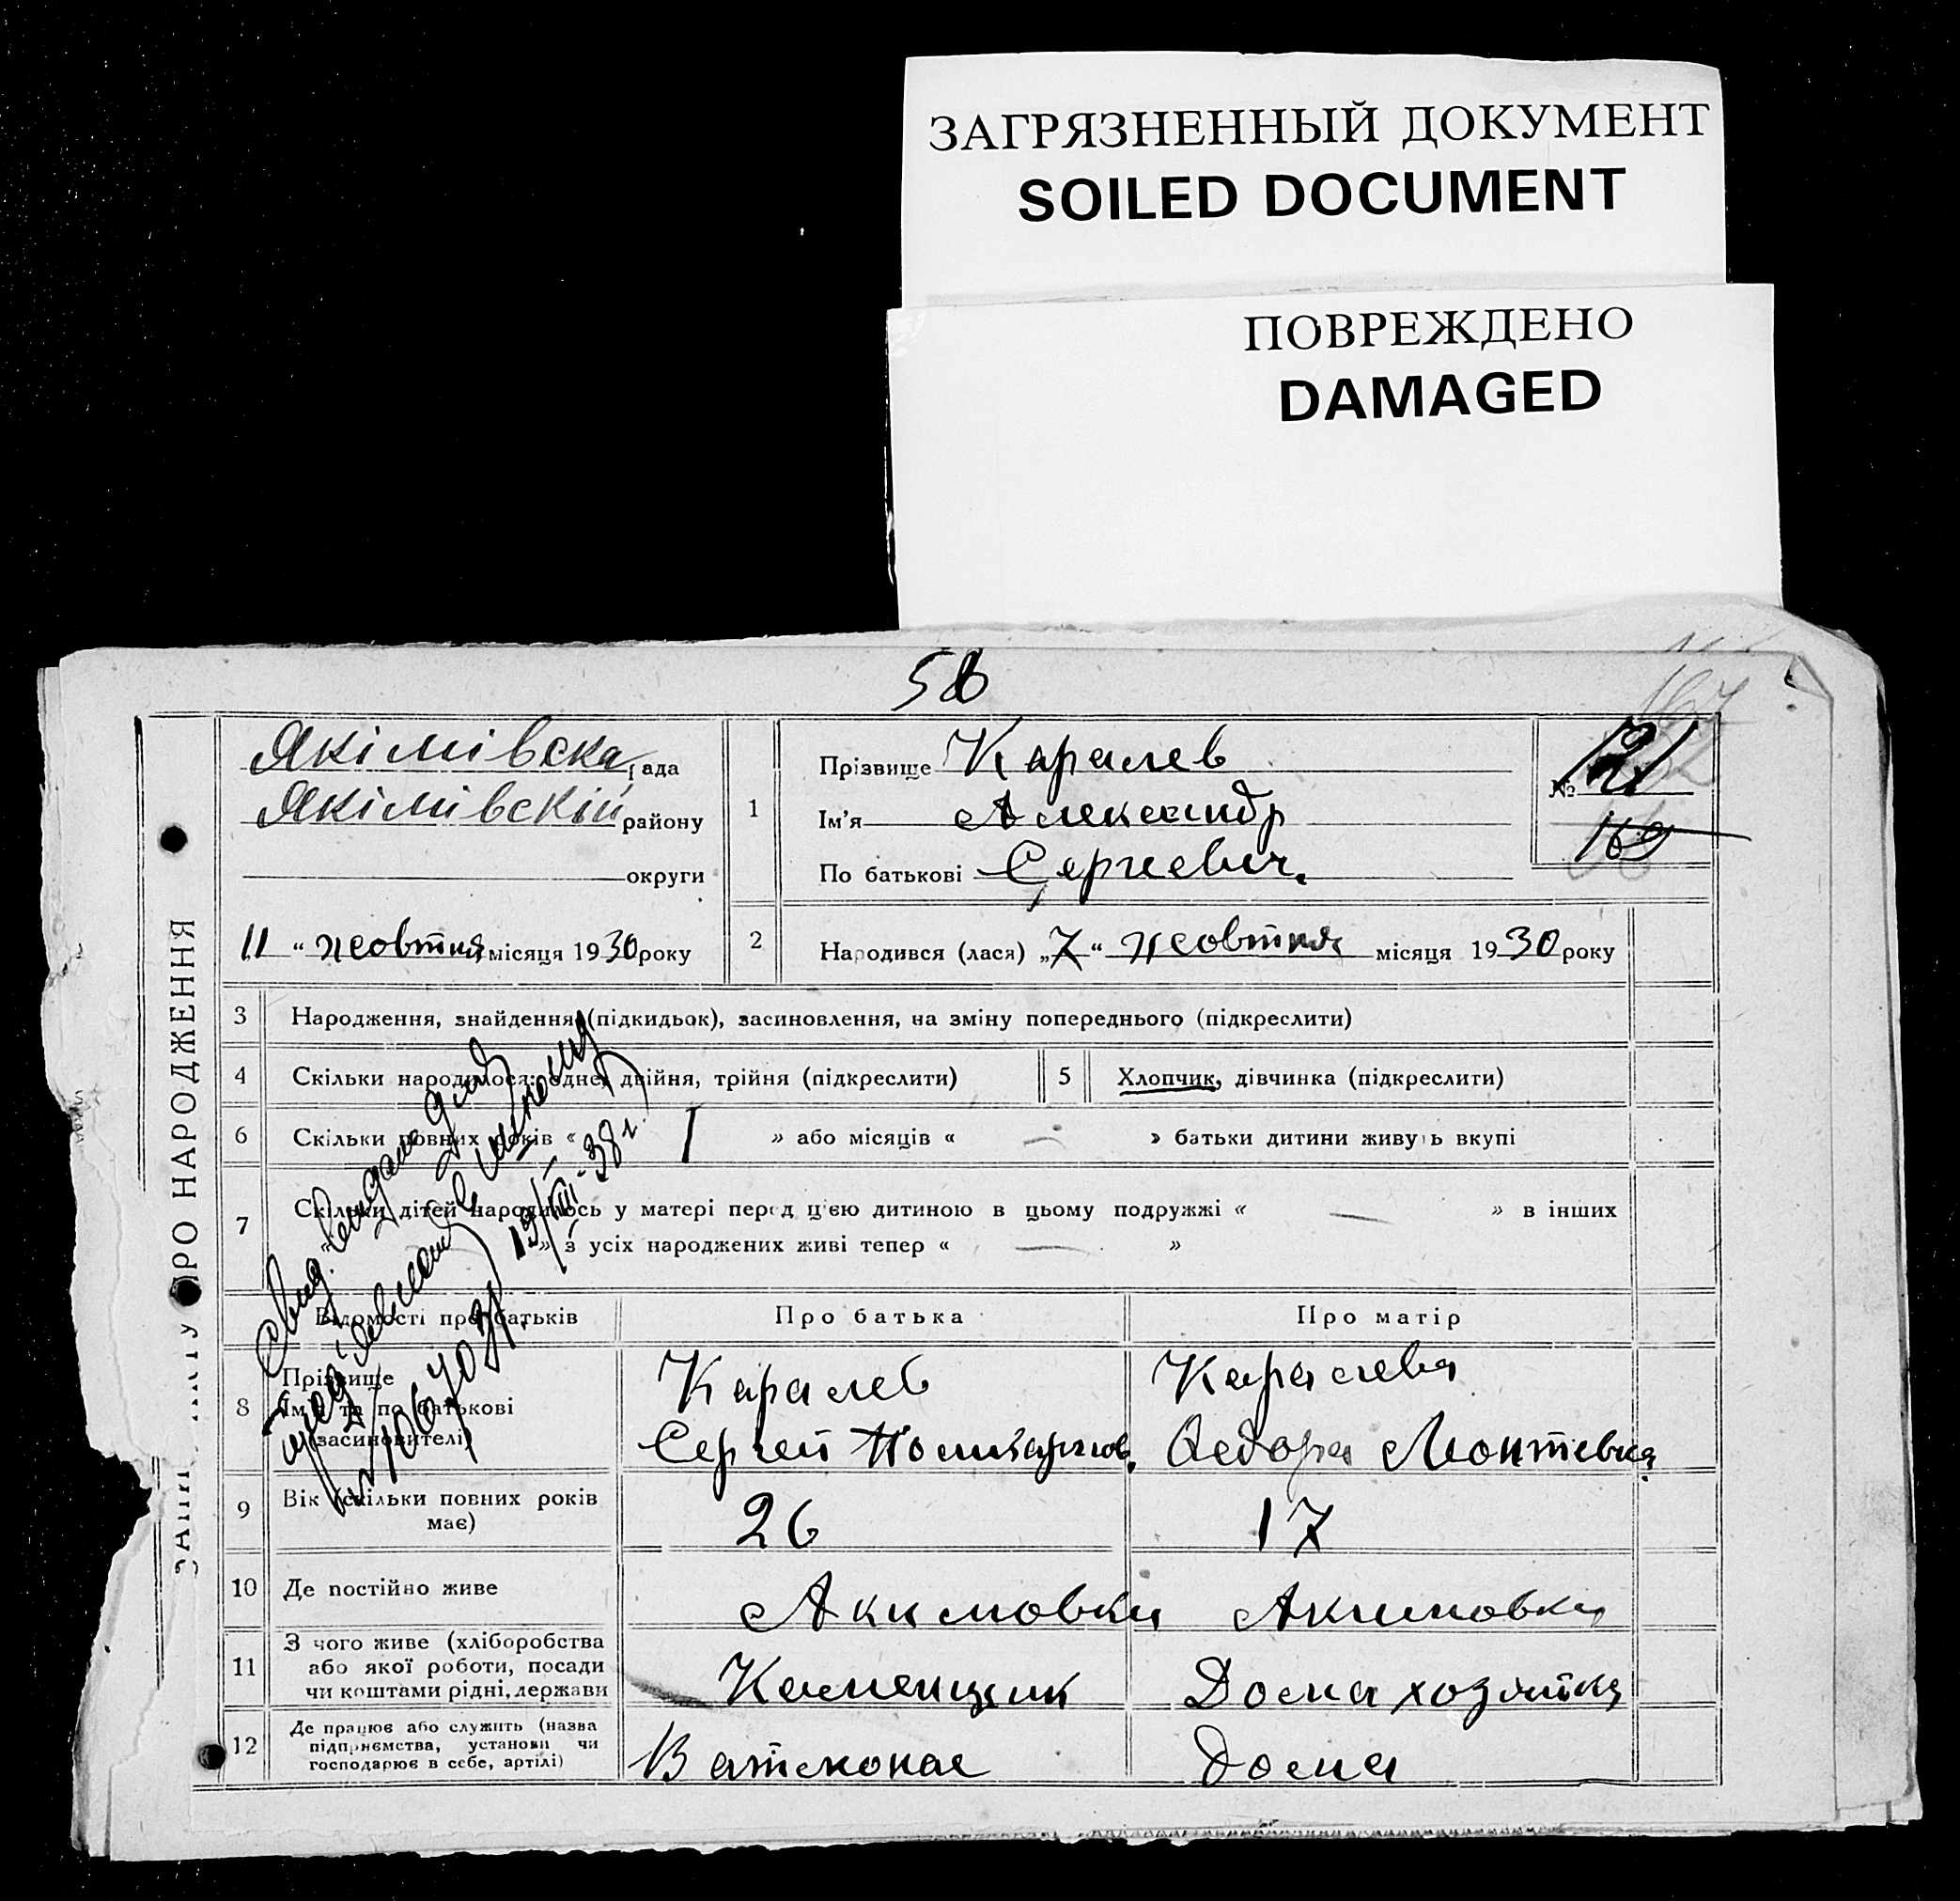 ЗАГРЯЗНЕННЫЙ ДОКУМЕНТ
SOILED DOCUMENT
ПОВРЕЖДЕНО
DAMAGED
Якімівска рада
Якімівскій району
округи
11 “ жовтня місяця 1930 року
РО НАРОДЖЕННЯ
1
Прізвище Каралев
Ім’я Александр
По батькові Сергеевич.
№ 121
169
2 Народився (лася) „7“ жовтня місяця 1930 року
3 Народження, знайдення (підкидьок), засиновлення, на зміну попереднього (підкреслити)
4 Скільки народилося: одне, двійня, трійня (підкреслити)
5 Хлопчик, дівчинка (підкреслити)
6 Скільки повних років « 1 » або місяців « — » батьки дитини живуть вкупі
7 Скільки дітей народилось у матері перед цією дитиною в цьому подружжі « — » в інших
» з усіх народжених живі тепер « — »
19/VIII-38 г.
Відомості про батьків
Про батька
Про матір
8 Прізвище
Ім’я та по батькові
(засиновителі)
Каралев
Сергей
Каралева
Леонтевна
9 Вік (скільки повних років має)
26
17
10 Де постійно живе
Акимовка
Акимовка
11 З чого живе (хліборобства
або якої роботи, посади
чи коштами рідні, держави
Каменщик
Дома хозяйка
12 Де працює або служить (назва
підприємства, установи чи
господарює в себе, артілі)
дома